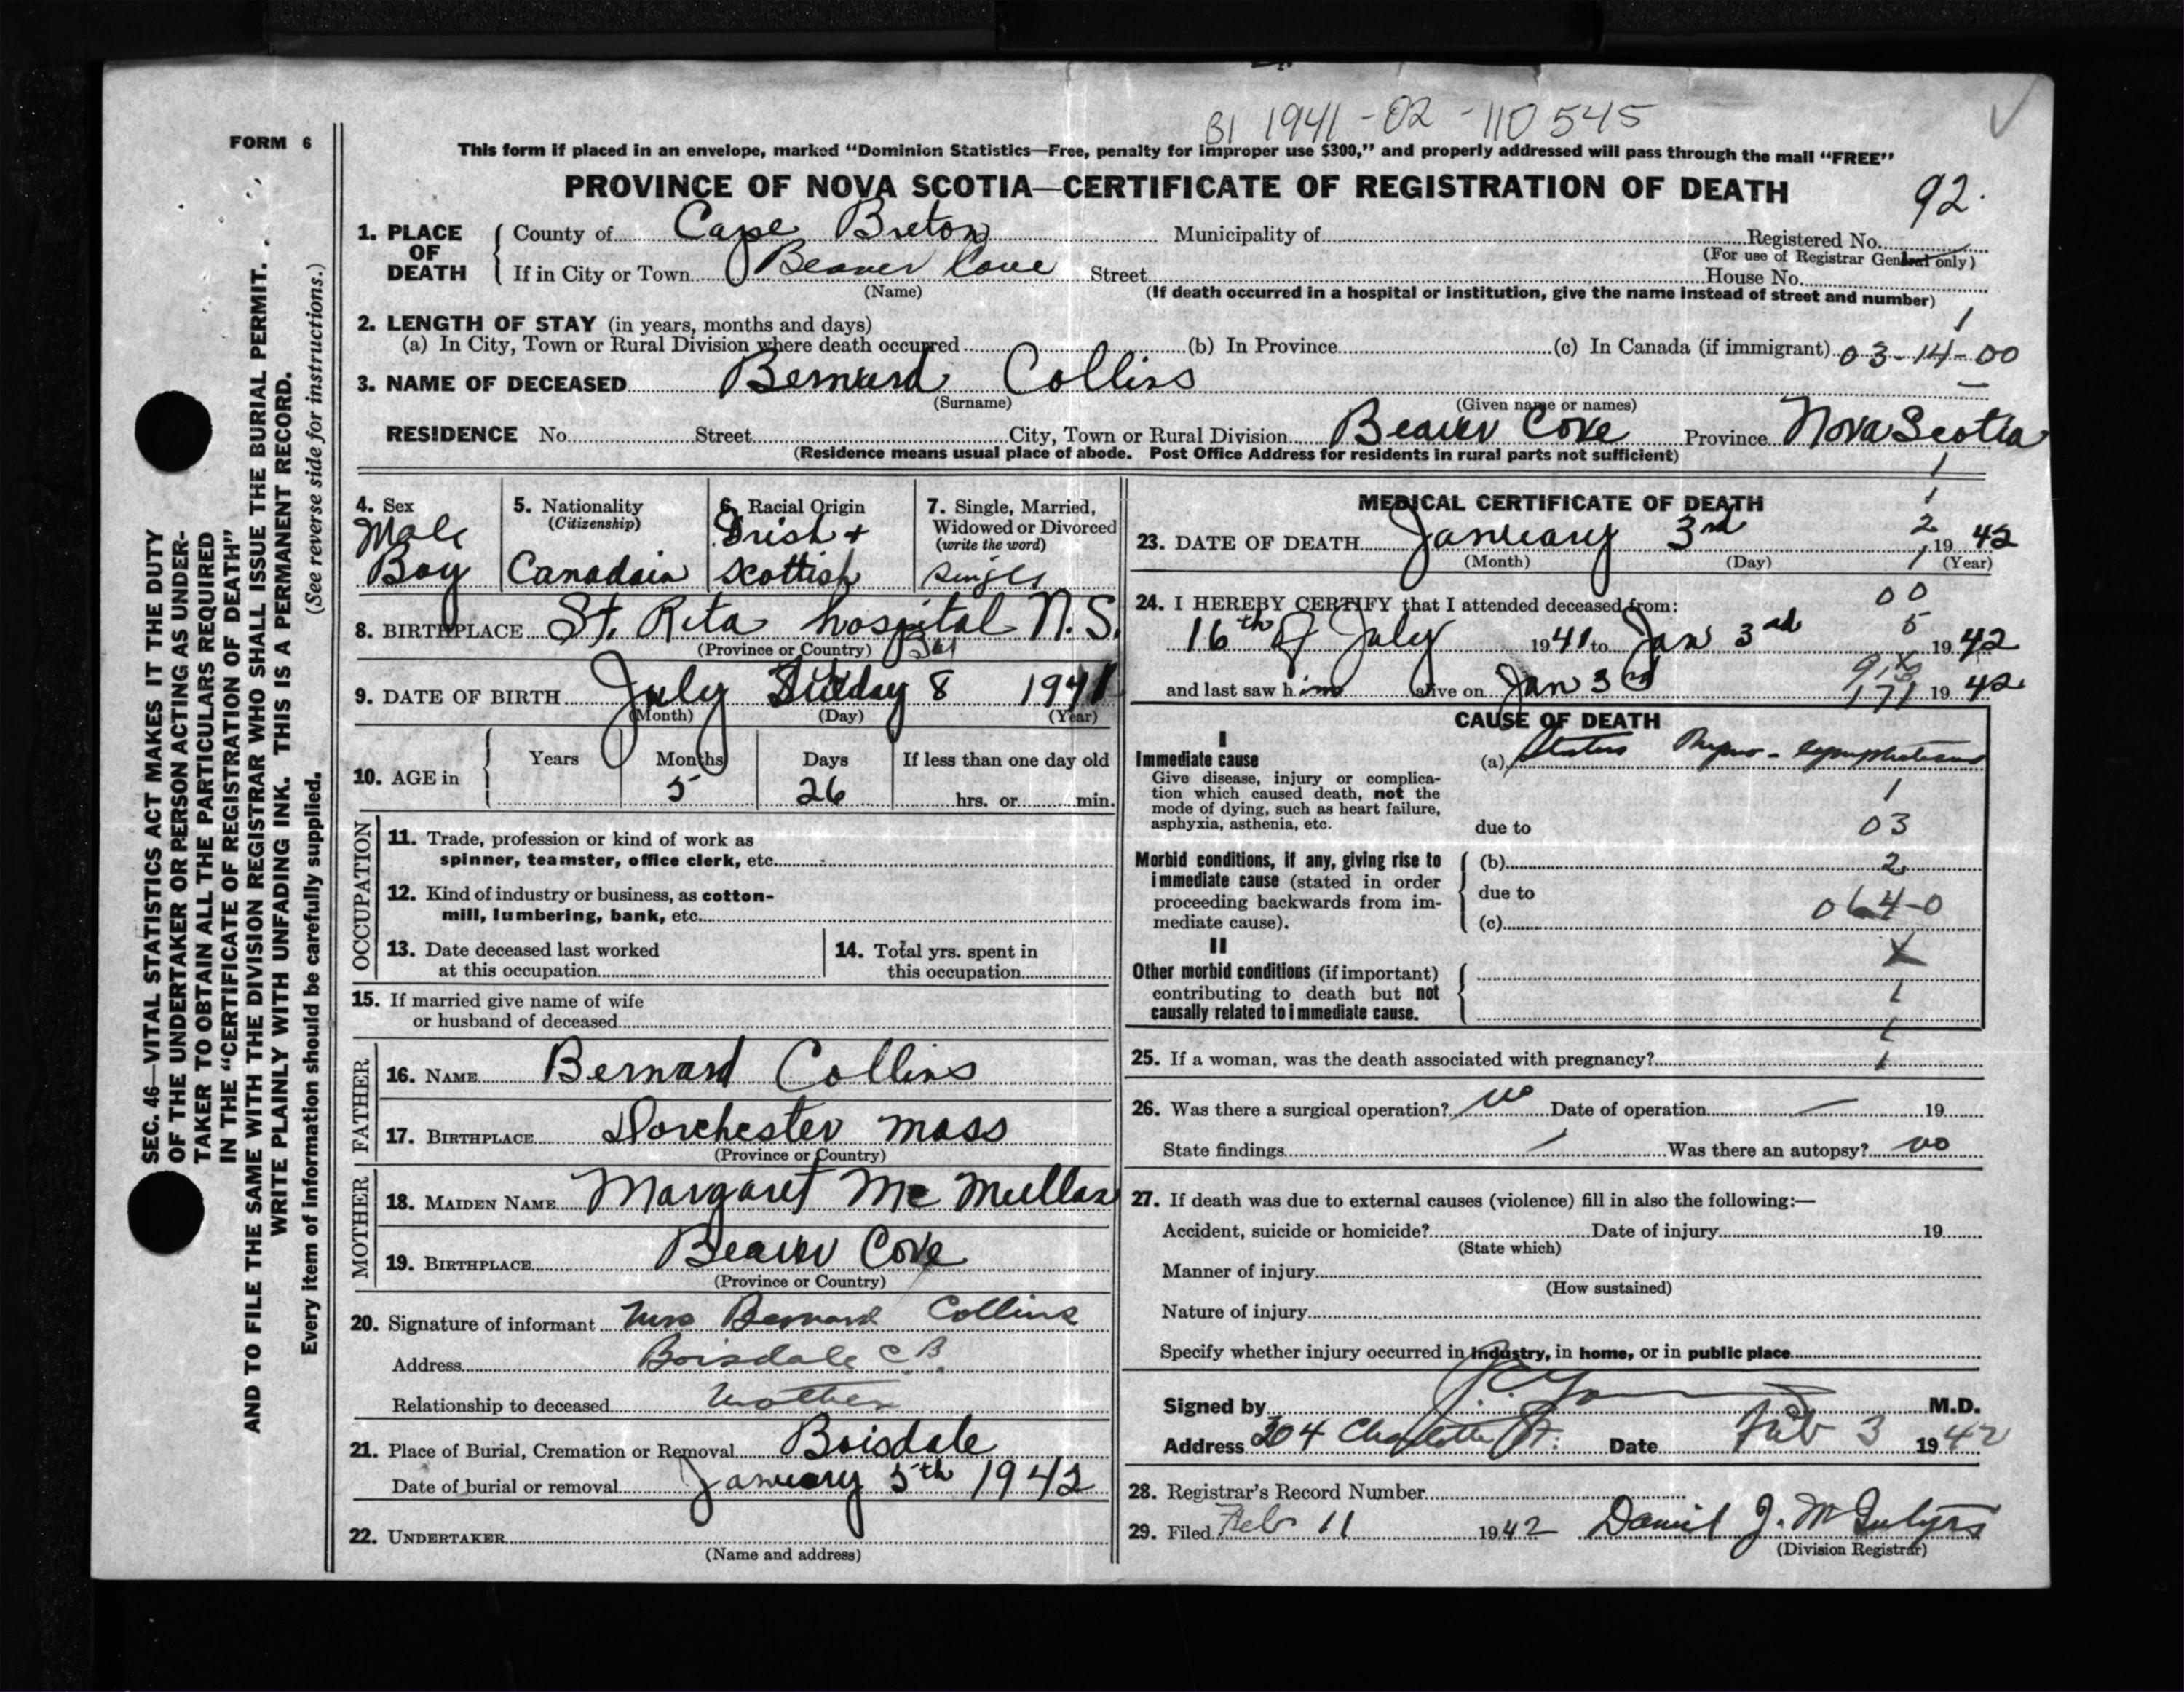 BI 1941-02-110545
FORM 6
This form if placed in an envelope, marked "Dominion Statistics—Free, penalty for improper use $300," and properly addressed will pass through the mail "FREE"
PROVINCE OF NOVA SCOTIA—CERTIFICATE OF REGISTRATION OF DEATH
92.
1. PLACE OF DEATH
County of Cape Breton Municipality of Registered No.
(For use of Registrar General only)
If in City or Town Beaver Cove Street House No.
(Name) (If death occurred in a hospital or institution, give the name instead of street and number)
2. LENGTH OF STAY (in years, months and days) 1
(a) In City, Town or Rural Division where death occurred (b) In Province (c) In Canada (if immigrant) 03-14-00
3. NAME OF DECEASED Bernard Collins
(Surname) (Given name or names)
RESIDENCE No. Street City, Town or Rural Division Beaver Cove Province Nova Scotia
(Residence means usual place of abode. Post Office Address for residents in rural parts not sufficient)
4. Sex
Male
Boy
5. Nationality
(Citizenship)
Canadain
6. Racial Origin
Irish +
Scottish
7. Single, Married,
Widowed or Divorced
(write the word)
single
8. BIRTHPLACE St. Rita hospital N.S.
(Province or Country)
9. DATE OF BIRTH July 8 1941
(Month) (Day) (Year)
10. AGE in
Years Months Days If less than one day old
5 26 hrs. or min.
OCCUPATION
11. Trade, profession or kind of work as
spinner, teamster, office clerk, etc.
12. Kind of industry or business, as cotton-
mill, lumbering, bank, etc.
13. Date deceased last worked
at this occupation
14. Total yrs. spent in
this occupation
15. If married give name of wife
or husband of deceased
FATHER
16. NAME Bernard Collins
17. BIRTHPLACE Dorchester Mass
(Province or Country)
MOTHER
18. MAIDEN NAME Margaret Mc Mullan
19. BIRTHPLACE Beaver Cove
(Province or Country)
20. Signature of informant Mrs Bernard Collins
Address Boisdale C.B.
Relationship to deceased Mother
21. Place of Burial, Cremation or Removal Boisdale
Date of burial or removal January 5th 1942
22. UNDERTAKER
(Name and address)
1
1
2
1
MEDICAL CERTIFICATE OF DEATH
23. DATE OF DEATH January 3rd 19 42
(Month) (Day) (Year)
00
24. I HEREBY CERTIFY that I attended deceased from:
5
16th of July 1941 to Jan 3rd 19 42
and last saw him alive on Jan 3rd 171 19 42
CAUSE OF DEATH
I
Immediate cause
Give disease, injury or complica-
tion which caused death, not the
mode of dying, such as heart failure,
asphyxia, asthenia, etc.
(a) Status
1
due to 03
Morbid conditions, if any, giving rise to
immediate cause (stated in order
proceeding backwards from im-
mediate cause).
(b) 2
due to 064-0
(c)
II
X
Other morbid conditions (if important)
contributing to death but not
causally related to immediate cause.
1
1
25. If a woman, was the death associated with pregnancy? 1
26. Was there a surgical operation? no Date of operation — 19
State findings Was there an autopsy? no
27. If death was due to external causes (violence) fill in also the following:—
Accident, suicide or homicide? Date of injury 19
(State which)
Manner of injury
(How sustained)
Nature of injury
Specify whether injury occurred in industry, in home, or in public place
Signed by M.D.
Address 204 Charlotte St. Date Feb 3 1942
28. Registrar's Record Number
29. Filed Feb 11 1942 Daniel J. McIntyre
(Division Registrar)
SEC. 46—VITAL STATISTICS ACT MAKES IT THE DUTY
OF THE UNDERTAKER OR PERSON ACTING AS UNDER-
TAKER TO OBTAIN ALL THE PARTICULARS REQUIRED
IN THE "CERTIFICATE OF REGISTRATION OF DEATH"
AND TO FILE THE SAME WITH THE DIVISION REGISTRAR WHO SHALL ISSUE THE BURIAL PERMIT.
WRITE PLAINLY WITH UNFADING INK. THIS IS A PERMANENT RECORD.
Every item of information should be carefully supplied. (See reverse side for instructions.)